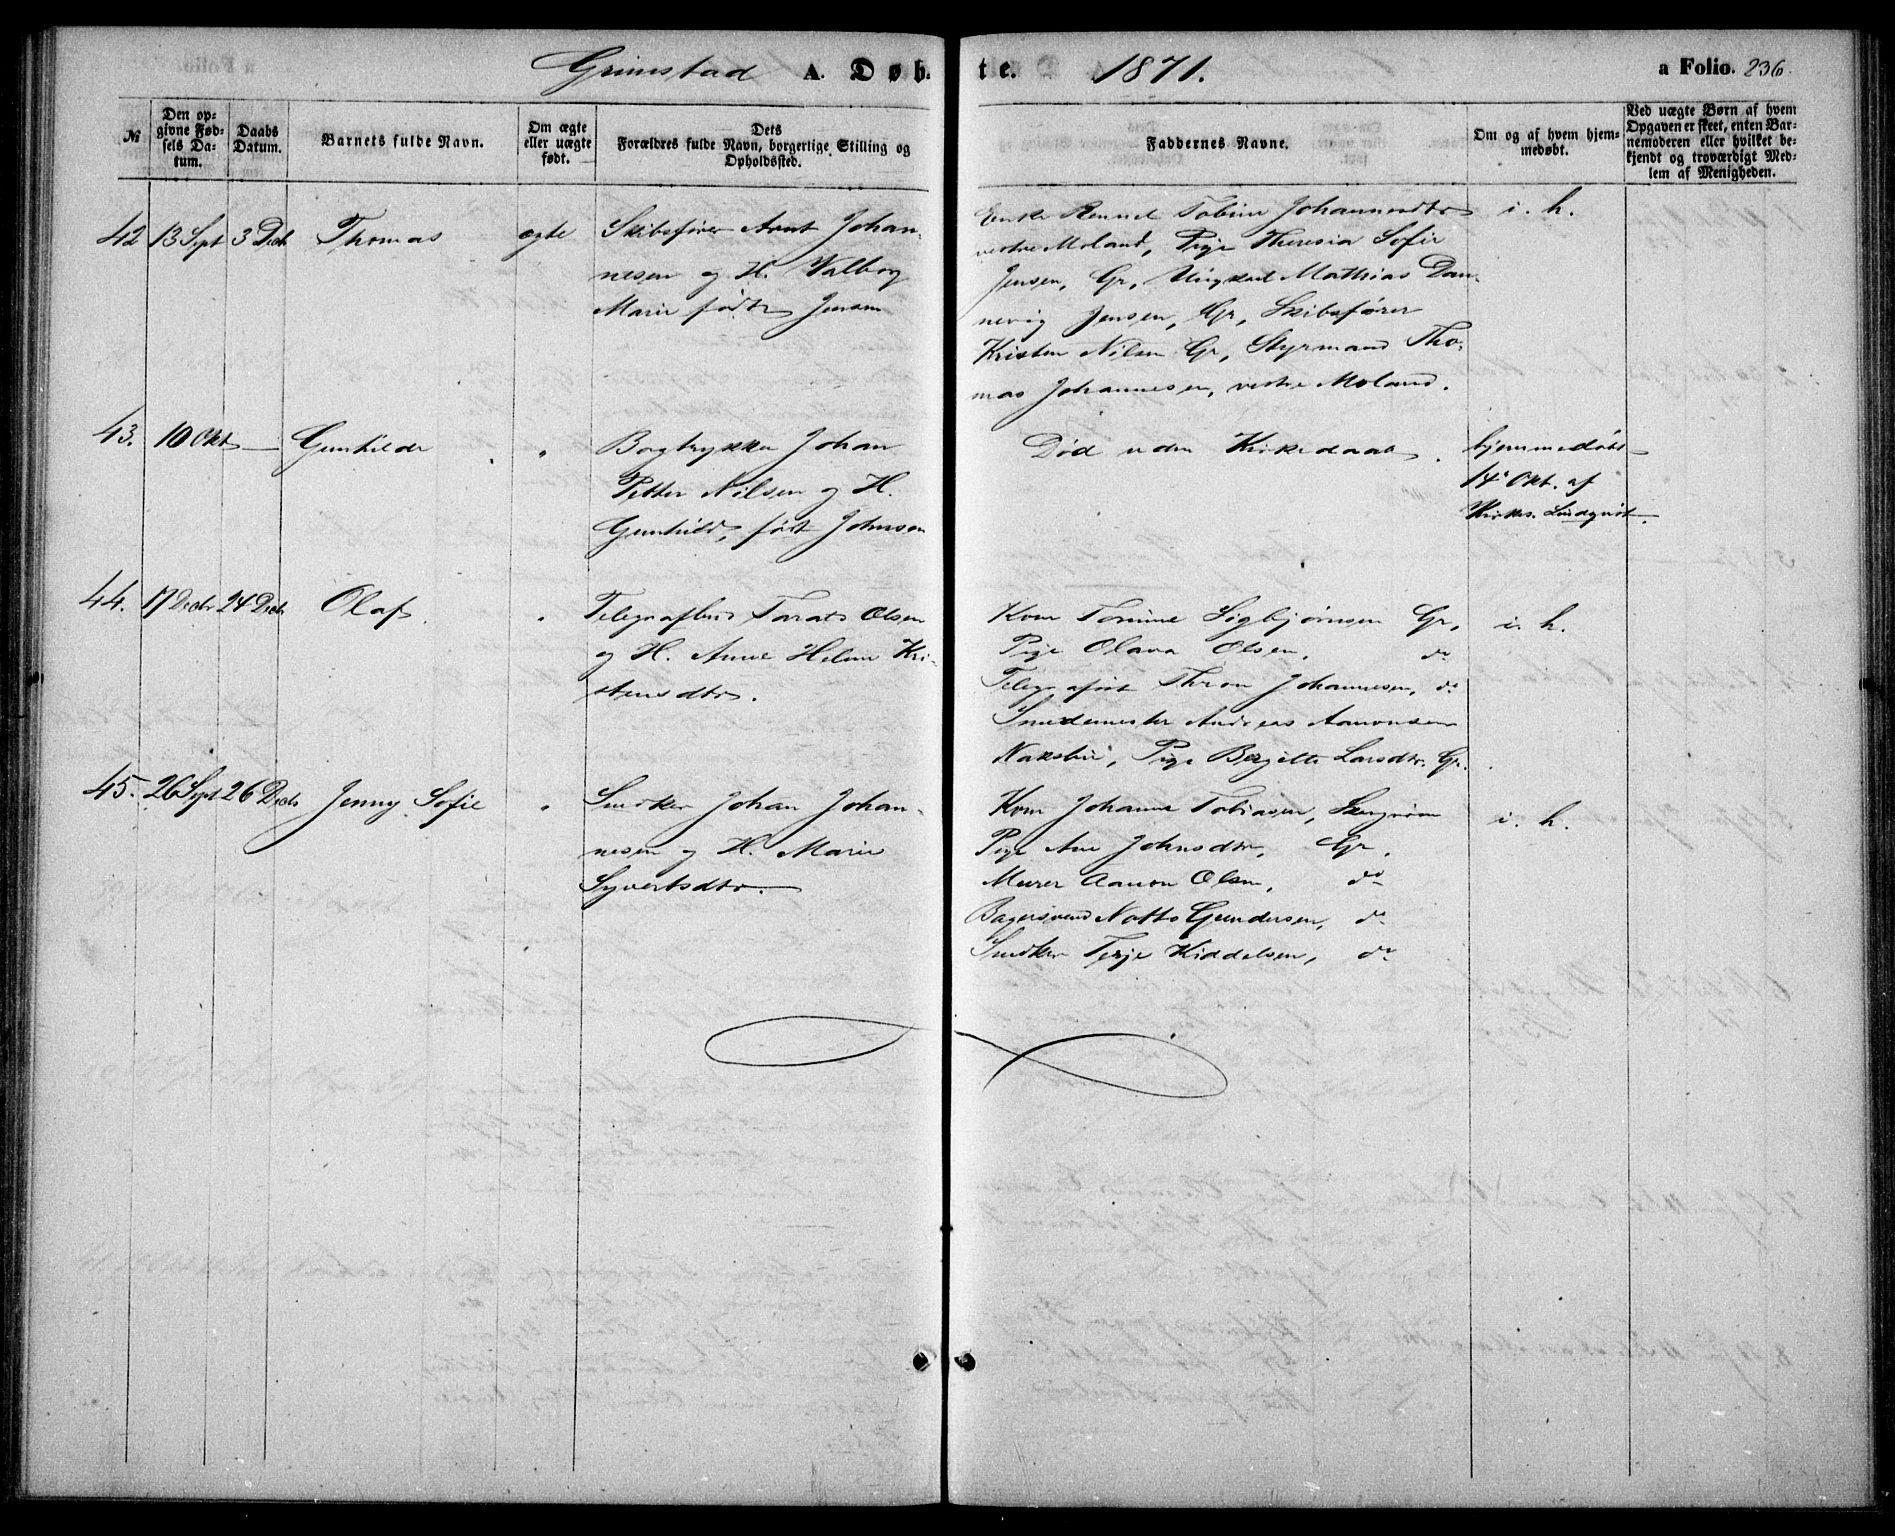 Grimstad A. Døb-
te. 1871. a Folio. 236.
№
Den op-
givne Fød-
sels Da-
tum.
Daabs
Datum.
Barnets fulde Navn.
Om ægte
eller uægte
født.
Dets
Forældres fulde Navn, borgerlige Stilling og
Opholdssted.
Faddernes Navne.
Om og af hvem hjem-
medøbt.
Ved uægte Børn af hvem
Opgaven er skeet, enten Bar-
nemoderen eller hvilket be-
kjendt og troværdigt Med-
lem af Menigheden.
42 13 Sept 3 Decb Thomas ægte
Skibsfører Arnt Johan-
nesen og H. Valborg
Marie født Jensen
Enke Tobine Johannesdtr
vestre Moland, Pige Theresia Sofie
Jensen, Gr, Ungkarl Mathias Dan-
nevig Jensen, Gr, Skibsfører
Kristen Nilsen Gr, Styrmand Tho-
mas Johannesen, vestre Moland.
i. h.
43. 10 Okt — Gunhilde "
Bogtrykker Johan
Petter Nilsen og H.
Gunhild, født Johnsen
Død uden Kirkedaab.
hjemmedøbt
14 Okt. af
Kirkes. Lindqvist.
44. 17 Decbr 24 Decb Olaf "
Telegrafbud Tarald Olsen
og H. Anne Helene Kri-
stensdtr.
Kone Tomine Sigbjørnsen Gr,
Pige Olava Olsen, do
Telegrafist Thron Johannesen, do
Smedemester Andreas Aaronsen
Naksbie, Pige Bergitte Larsdtr. Gr.
i. h.
45. 26 Sept 26 Decb Jenny Sofie "
Snedker Johan Johan-
nesen og H. Marie
Syvertsdtr.
Kone Johanne Tobiasen,
Pige Ane Johnsdtr, Gr,
Murer Aanon Olsen, do
Bagersvend Notto Gundersen, do
Snedker Terje Kiddelsen, do
i. h.